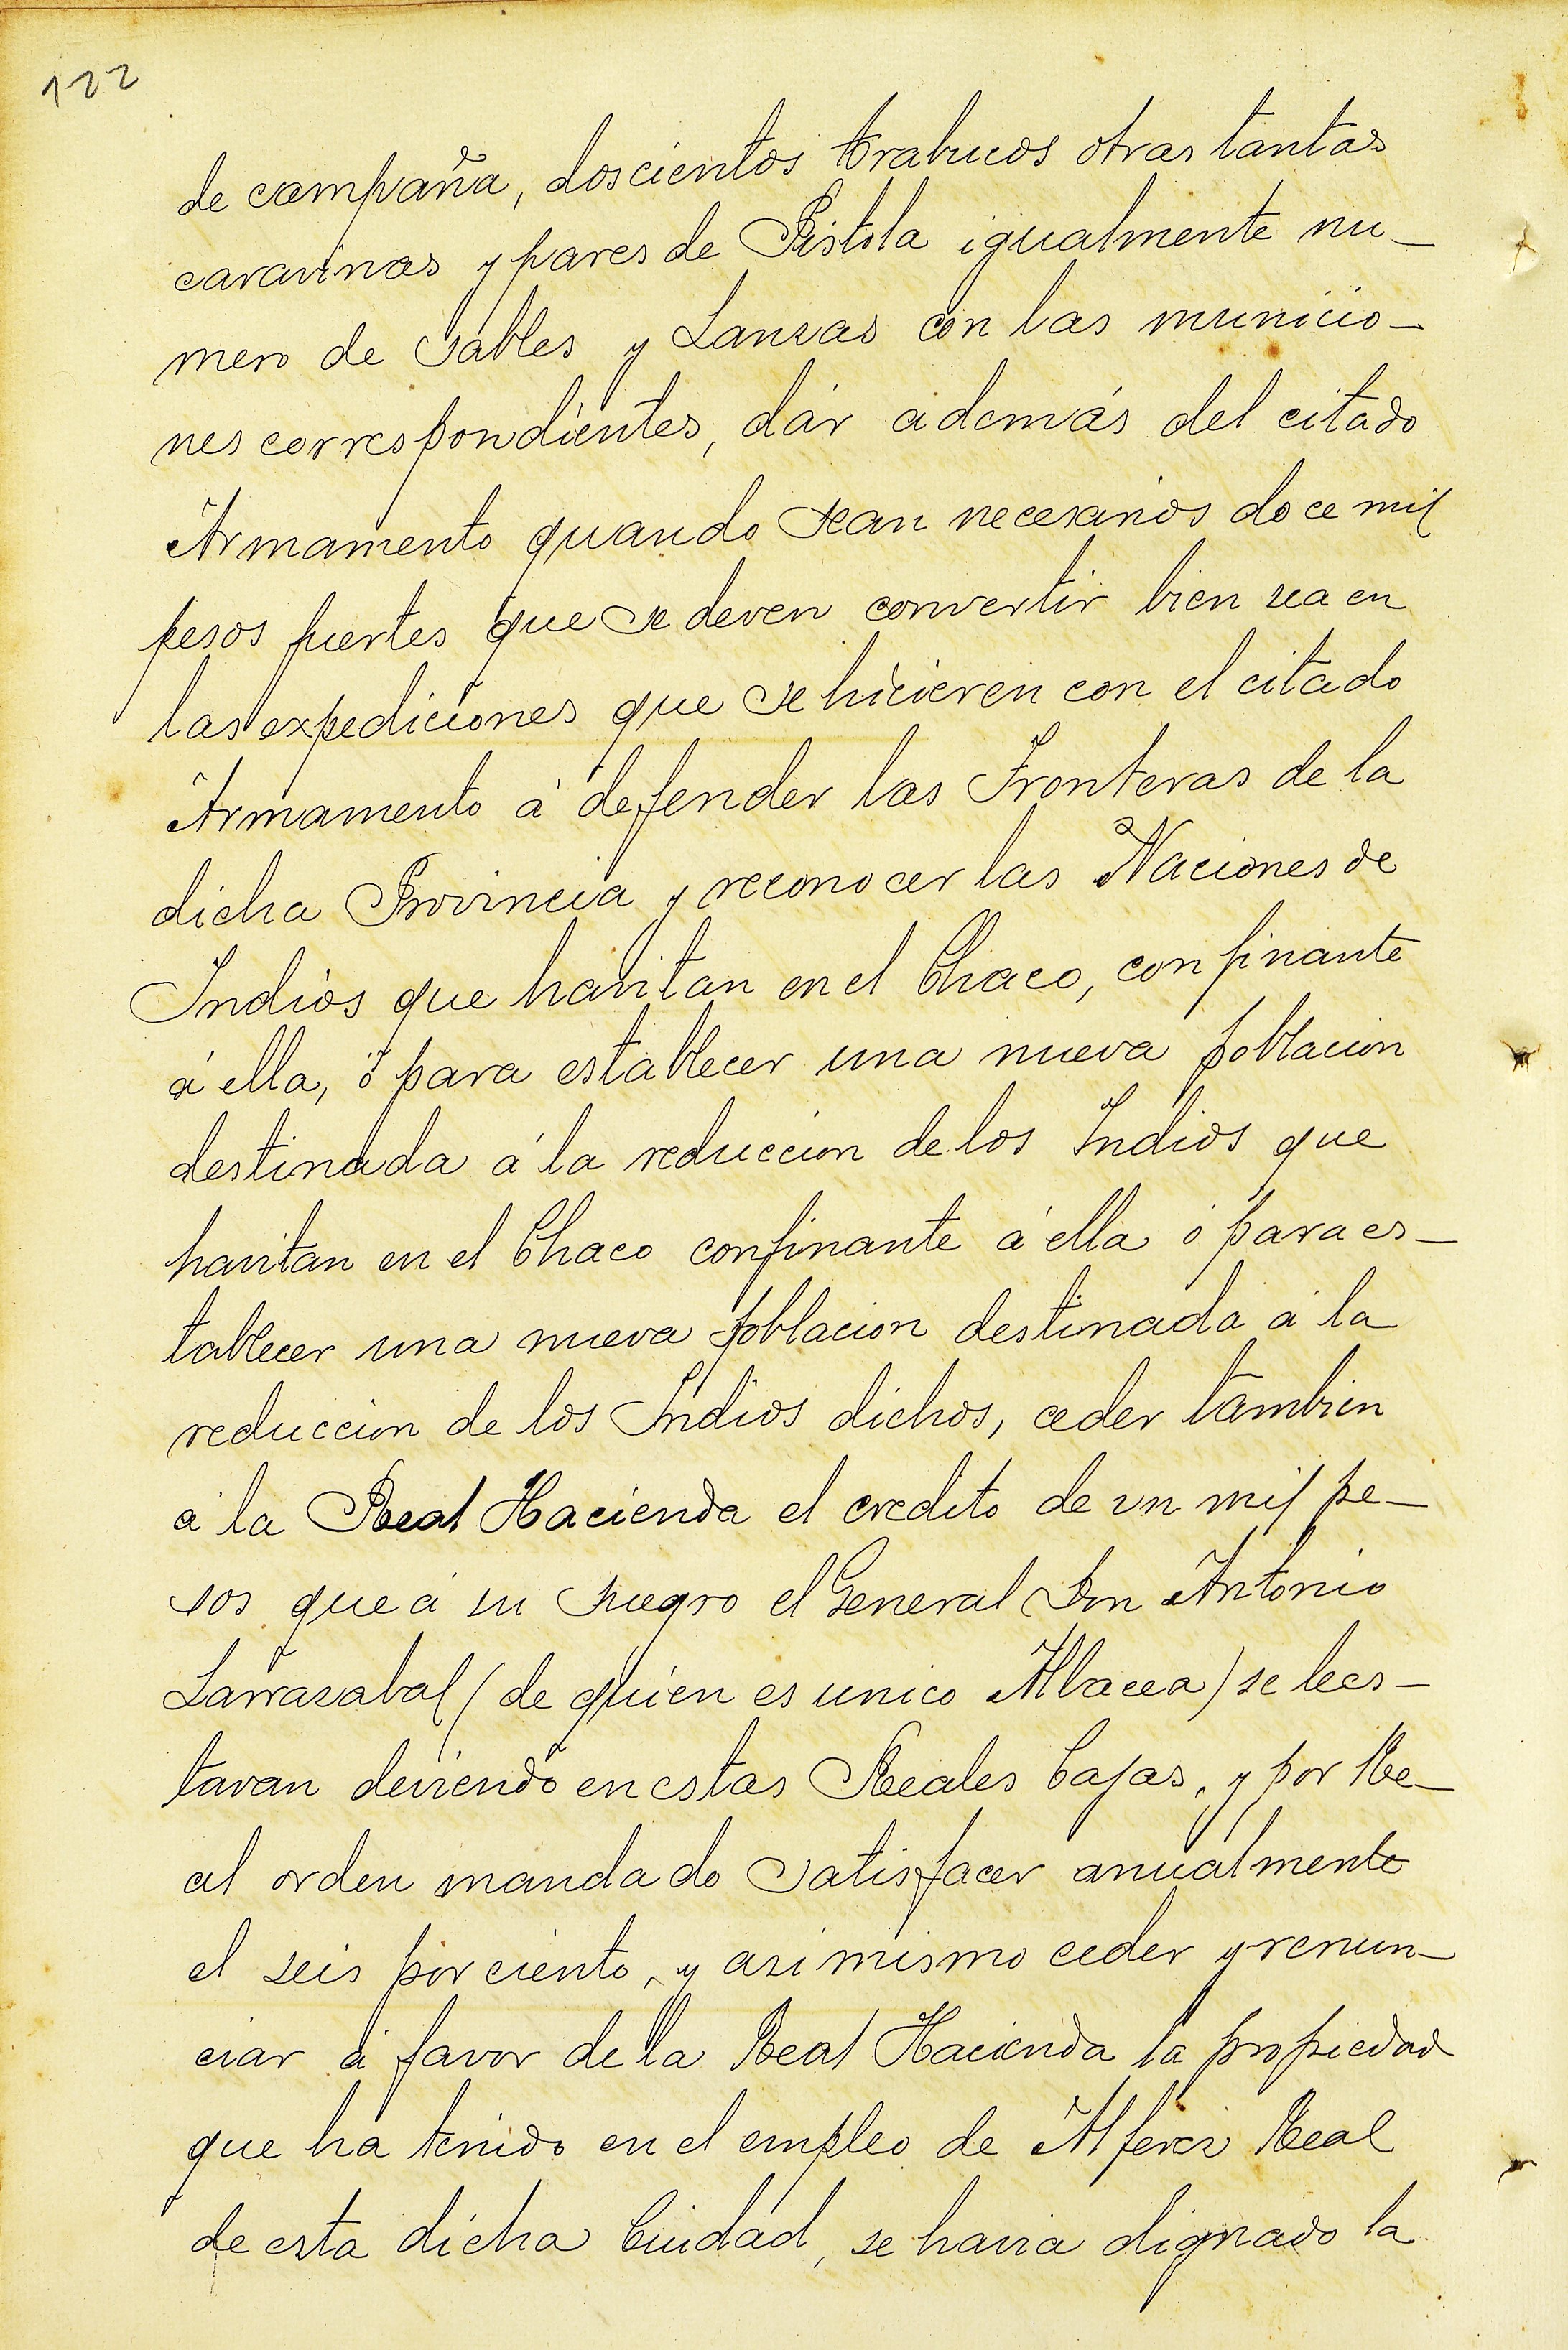 122
de campaña, doscientos trabucos otras tantas
caravinas y pares de Pistola igualmente nu-
mero de Sables y Lanzas con las municio-
nes correspondientes, dár además del citado
Armamento quando sean necesarios doce mil
pesos fuertes que se deven convertir bien sea en
las expediciones que se hicieren con el citado
Armamento á defender las Fronteras de la
dicha Provincia y reconocer las Naciones de
Indios que havitan en el Chaco, confinante
á ella, ó para establecer una nueva poblacion
destinada á la reduccion de los Indios que
havitan en el Chaco confinante á ella ó para es-
tablecer una nueva poblacion destinada á la
reduccion de los Indios dichos, ceder tambien
á la Real Hacienda el credito de un mil pe-
sos que á su suegro el General Don Antonio
Larrazabal (de quien es unico Albacea) se les es-
tavan deviendo en estas Reales Cajas, y por Re-
al orden mandado satisfacer anualmente
el seis por ciento, y asi mismo ceder y renun-
ciar á favor de la Real Hacienda la propiedad
que ha tenido en el empleo de Alferez Real
de esta dicha Ciudad, se havia dignado la